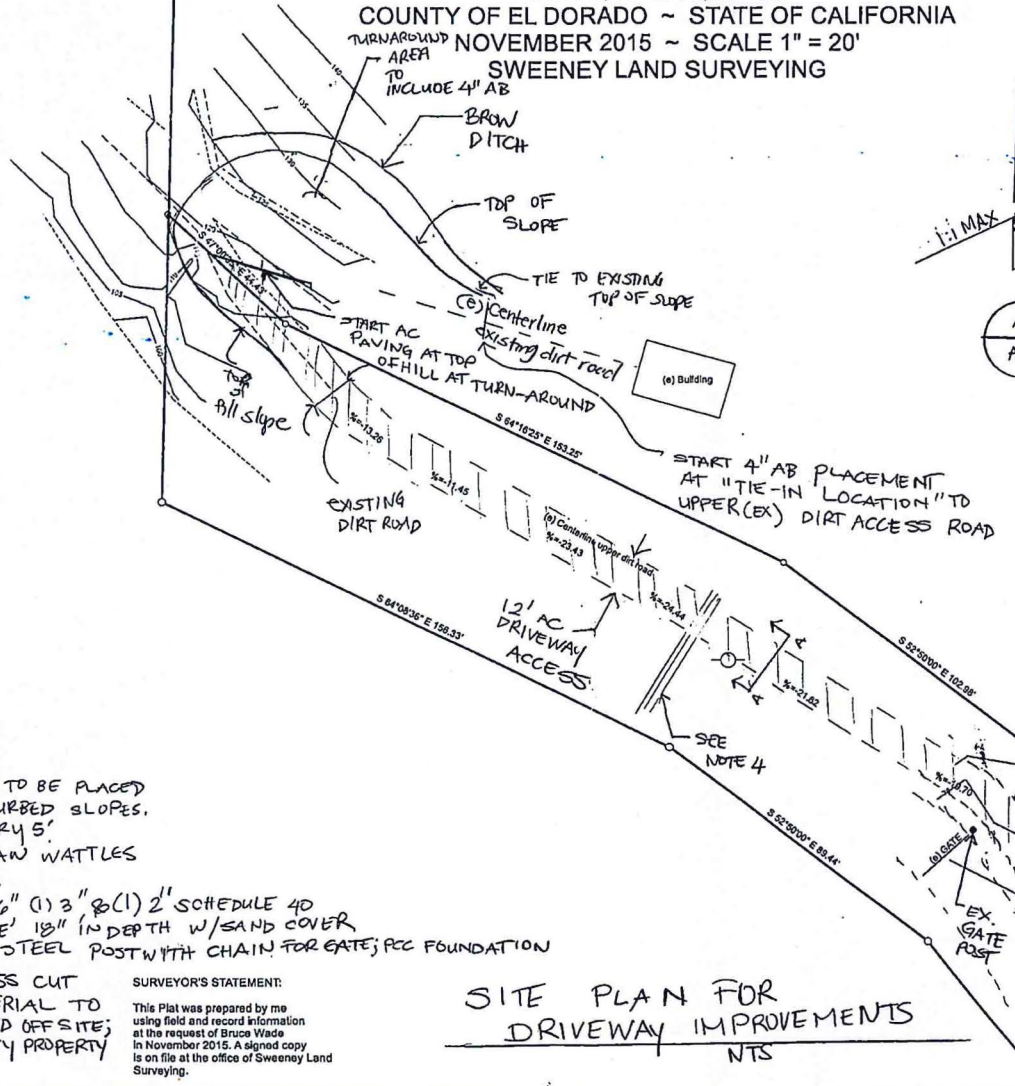 COUNTY OF EL DORADO ~ STATE OF CALIFORNIA
NOVEMBER 2015 ~ SCALE 1" = 20'
SWEENEY LAND SURVEYING
TURNAROUND
AREA
TO
INCLUDE 4" AB
BROW
DITCH
TOP OF
SLOPE
1:1 MAX
TIE TO EXISTING
TOP OF SLOPE
(e) Centerline
existing dirt road
(e) Building
START AC
PAVING AT TOP
OF HILL AT TURN-AROUND
140
135
130
105
100
fill slope
EXISTING
DIRT ROAD
S 64°16'25" E 153.25'
START 4" AB PLACEMENT
AT "TIE-IN LOCATION" TO
UPPER (EX) DIRT ACCESS ROAD
%=-13.26
%=-11.45
(e) Centerline upper dirt road
%=-23.43
%=-24.44
%=-21.62
S 64°08'36" E 156.33'
12' AC
DRIVEWAY
ACCESS
1
A
A
S 52°50'00" E 102.98'
SEE
NOTE 4
S 52°50'00" E 89.44'
(e) GATE
EX.
GATE
POST
TO BE PLACED
URBED SLOPES.
RY 5'
AN WATTLES
6" (1) 3" &(1) 2" SCHEDULE 40
E' 18" IN DEPTH W/SAND COVER
STEEL POST WITH CHAIN FOR GATE; PCC FOUNDATION
SS CUT
ERIAL TO
D OFF SITE;
TY PROPERTY
SURVEYOR'S STATEMENT:
This Plat was prepared by me
using field and record information
at the request of Bruce Wade
in November 2015. A signed copy
is on file at the office of Sweeney Land
Surveying.
SITE PLAN FOR
DRIVEWAY IMPROVEMENTS
NTS